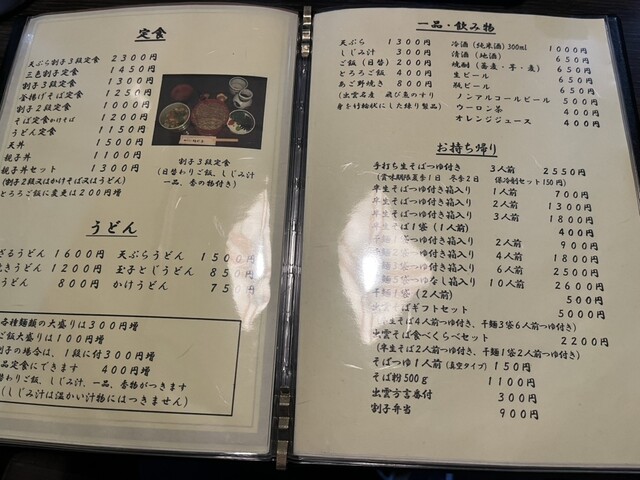 定食
天ぷら割子3段定食 2300円
三色割子定食 1450円
割子3段定食 1300円
釜揚げそば定食 1250円
割子2段定食 1000円
そば定食かけそば 1200円
うどん定食 1150円
天丼 1500円
親子丼 1100円
親子丼セット 1300円
(割子2段又はかけそば又はうどん)
とろろご飯に変更は200円増
割子3段定食
(日替わりご飯、しじみ汁
一品、香の物付き)
うどん
ざるうどん 1600円 天ぷらうどん 1500円
きうどん 1200円 玉子とじうどん 850円
うどん 800円 かけうどん 750円
各種麺類の大盛りは300円増
ご飯大盛りは100円増
割子の場合は、1段に付300円増
品定食にできます 400円増
替わりご飯、しじみ汁、一品、香物がつきます
(しじみ汁は温かい汁物にはつきません)
一品・飲み物
天ぷら 1300円
しじみ汁 300円
ご飯(日替) 200円
とろろご飯 400円
あご野焼き 800円
(出雲名産 飛び魚のすり
身を竹輪状にした練り製品)
冷酒(純米酒)300ml 1000円
清酒(地酒) 650円
焼酎(蕎麦・芋・麦) 650円
生ビール 650円
瓶ビール 650円
ノンアルコールビール 500円
ウーロン茶 400円
オレンジジュース 400円
お持ち帰り
手打ち生そばつゆ付き 3人前 2550円
(賞味期限夏季1日 冬季2日 保冷剤セット150円)
半生そばつゆ付き箱入り 1人前 700円
半生そばつゆ付き箱入り 2人前 1300円
半生そばつゆ付き箱入り 3人前 1800円
半生そば1袋(1人前) 400円
つゆ付き箱入り 2人前 900円
つゆ付き箱入り 4人前 1800円
つゆ付き箱入り 6人前 2500円
つゆなし箱入り 10人前 2600円
干麺1袋(2人前) 500円
そばギフトセット 5000円
生そば4人前つゆ付き、干麺3袋6人前つゆ付き)
出雲そば食べくらべセット 2200円
(半生そば2人前つゆ付き、干麺1袋2人前つゆ付き)
そばつゆ1人前(真空タイプ) 150円
そば粉500g 1100円
出雲方言番付 300円
割子弁当 900円